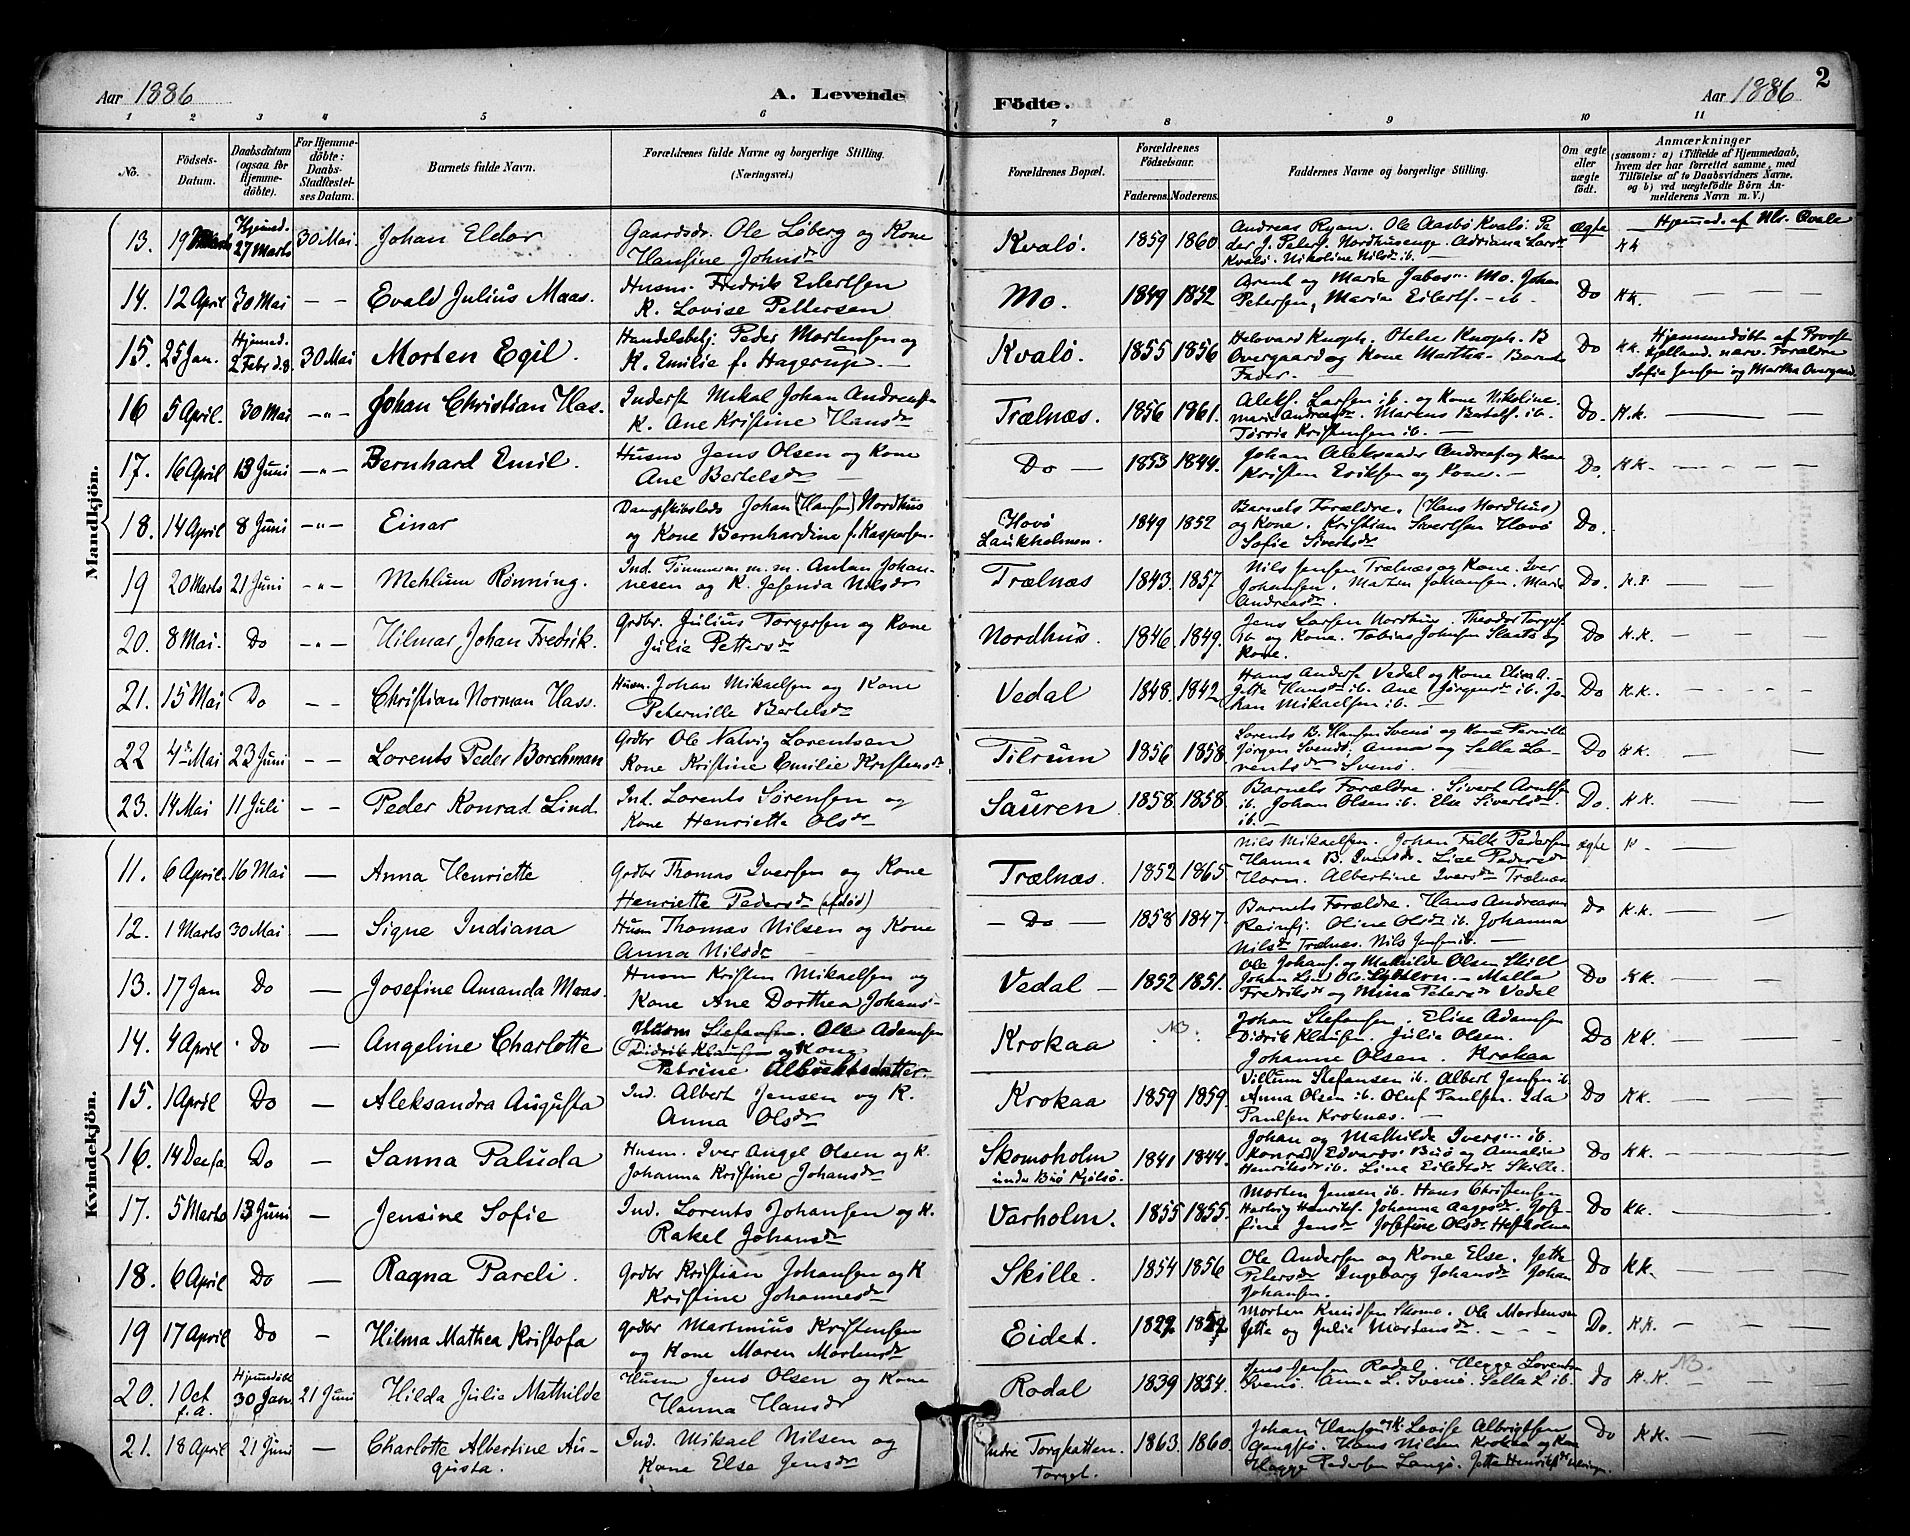 Aar 1886
A. Levende Födte.
Aar 1886
2
1 2 3 4 5 6 7 8 9 10 11
No.
Födsels-Datum.
Daabsdatum (ogsaa for Hjemme-döbte).
For Hjemme-döbte: Daabs-Stadfæstel-ses Datum.
Barnets fulde Navn.
Forældrenes fulde Navne og borgerlige Stilling. (Næringsvei.)
Forældrenes Bopæl.
Forældrenes Födselsaar.
Faderens. Moderens.
Faddernes Navne og borgerlige Stilling.
Om ægte eller uægte födt.
Anmærkninger
(saasom: a) i Tilfælde af Hjemmedaab, hvem der har forrettet samme, med Tilföielse af to Daabsvidners Navne, og b) ved uægtefödte Börn An-melderens Navn m. V.)
Mandkjön.
13. 19 Marts Hjemmed. 27 Marts 30 Mai Johan Eldor Gaardsdr. Ole Löberg og Kone Hansine Johnsdr Kvalö. 1859 1860 Andreas Ryan. Ole Aasbö Kvalö. Peder J. Peters. Nordhuseuge. Adriana Larsdr Kvalö. Nikoline Nilsdr ib. ægte Hjemmed. af Kk
14. 12 April 30 Mai – – Evald Julius Maas. Husm. Fredrik Eilertsen K. Lovise Pettersen Mo. 1849 1852 Arent og Maria Mo. Johan Petersen, Maria Eilerts. – ib. Do Kk.
15. 25 Jan. Hjemmed. 2 Febr d.å 30 Mai Morten Egil. Handelsbetj. Peder Mortensen og K. Emilie f. Hagerup. Kvalö. 1855 1856 Overgaard og Kone Martha. Barnets Fader. Do Kk. Hjemmedöbt af Provst Kjelland. nærv. Forældre Sofie Jensen og Martha Overgaard.
16 5 April. 30 Mai –"– Johan Christian Has. Inderst Mikal Johan Andreass. K. Ane Kristine Hansdr Trælnæs. 1856 1861. Aleks. Larsen ib. og Kone Nikoline. Andreasdr. Marens Bertels. ib. Törris Kristensen ib. Do. K.k.
17. 16 April 13 Juni –"– Bernhard Emil. Husm Jens Olsen og Kone Ane Bertelsdr Do – 1853 1844. Johan Aleksander Andreas. og Kone Kristen Eriksen og Kone. Do. KK.
18. 14 April 8 Juni –"– Einar Dampskibsleds Johan (Hansen) Nordhus og Kone Bernhardine f. Kaspersen. Hovö Laukholmen. 1849 1852 Barnets Forældre. (Hans Nordhus) og Kone. Kristian Sivertsen Hovö Sofie Sivertsdr Do.
19 20 Marts 21 Juni –"– Mehlum Rönning. Ind. Tömmerm. m. m. Anton Johannesen og K. Jasenda Nilsdr Trælnæs 1843. 1857 Nils Jensen Trælnæs og Kone. Iver Johansen. Marten Johansen. Maria Andreasdr. Do.
20. 8 Mai. Do –"– Hilmar Johan Fredrik. Grdbr. Julius Torgersen og Kone Julie Pettersdr Nordhus. 1846 1849. Jens Larsen Nordhus. Theodor Torgers. ib og Kone. Tobias Johnsen Slaatö og Kone. Do K.K.
21. 15 Mai Do – – Christian Norman Hass. Husm. Johan Mikaelsen og Kone Peternille Bertelsdr Vedal 1848. 1842 Hans Anders. Vedal og Kone Jetta Hansdr ib. Ane Jörgensdr ib. Johan Mikaelsen ib. Do K.K.
22 4de Mai 23 Juni – – Lorents Peder Borchman Grdbr Ole Natvig Lorentsen Kone Kristine Emilie Kristensdr Tilrum 1856 1858. Lorents B. Hansen Svenö og Kone Pernille Jörgen Svendö, Anna og Sille Lorentsdr Svenö. Do KK.
23. 14 Mai 11 Juli – – Peder Konrad Lind. Ind. Lorents Sörensen og Kone Henriette Olsdr Sauren 1858. 1858. Barnets Forældre. Sivert Arntsen ib. Johan Olsen ib. Else Sivertsdr. ib. Do. KK.
Kvindekjön.
11. 6 April. 16 Mai – Anna Henriette Grdbr Thomas Iversen og Kone Henriette Pedersdr (afdöd) Trælnæs. 1852 1865. Nils Mikaelsen. Johan Falk Pedersen Hanna B. Iversdr. Lise Pedersdr Horn. Albertine Iversdr Trælnæs ægte K
12. 1 Marts 30 Mai – Signe Indiana Husm Thomas Nilsen og Kone Anna Nilsdr – Do – 1858 1847. Barnets Forældre. Hans Andreasen Reinfj. Oline Olsdr ib. Johanna Nilsdr Trælnæs. Nils Jensen ib. Do K.K.
13. 17 Jan Do – Josefine Amanda Maas. Husm Kristen Mikaelsen og Kone Ane Dorthea Johans- Vedal – 1852 1851. Ole Johans. og Mathilde Olsen Skill Johan – Malla Fredriksdr og Mina Petersdr Vedal Do KK
14. 4 April Do – Angeline Charlotte Husm Stefansen. Ole Adamsen Didrik Klausen og Kone Petrine Albrektsdatter. Krokaa NB. Johan Stefansen. Elise Adamsen Didrik Klausen. Julie Olsen. Johanne Olsen. Krokaa Do KK.
15. 1 April Do – Aleksandra Augusta Ind. Albert Jensen og K. Anna Olsdr Krokaa 1859 1859. Villum Stefansen ib. Albert Jensen ib. Anna Olsen ib. Oluf Paulsen. Ida Paulsen Kroknæs. Do KK.
16. 14 Do – Sanna Paluda Husm. Iver Angel Olsen og K. Johanna Kristine Johansdr Skomoholm under Buö Kjölsö. 1841 1844. Johan og Mathilde Ivers ib. Konrad Edvards. Buö og Amalie Henriksdr ib. Line Eilertsdr. Skille. Do KK.
17. 5 Marts 13 Juni – Jensine Sofie Ind. Lorents Johansen og K. Rakel Johansdr Varholm. 1855 1855. Morten Jensen ib. Hans Christensen Hartvig Henriks. Johanna Aagesdr. Josefine Jensdr. Josefine Olsdr Do KK.
18. 6 April Do – Ragna Pareli. Grdbr Kristian Johansen og K Kristine Johannesdr Skille. 1854 1856 Ole Andersen og Kone Else. Jetta Petersdr Ingeborg Johansdr Johan Johansen. Do KK.
19 17 April Do – Hilma Mathea Kristofa Grdbr Martinius Kristensen og Kone Maren Mortensdr Eidet. Morten Knudsen Skomo. Ole Mortensen Jetta og Julie Mortensdr. Do. KK.
20. 1 Oct f.a. Hjemmedöbt 30 Jan. 21 Juni Hilda Julia Mathilde Husm Jens Olsen og Kone Hanna Hansdr Rodal 1839 1854. Jens Jensen Rodal. Hegge Lorents. Svenö. Anna L. Svenö. Sella L ib. Do K.K. NB.
21. 18 April 21 Juni – Charlotte Albertine Augusta. Ind. Mikael Nilsen og Kone Else Jensdr Indre Torghatten. Torget. 1863. 1860. Johan Hansen K. Lovise Albrigtsen Hans Nilsen Krokaa og Kone Hagge Pedersen Langö. Jetta Henriks Do KK.